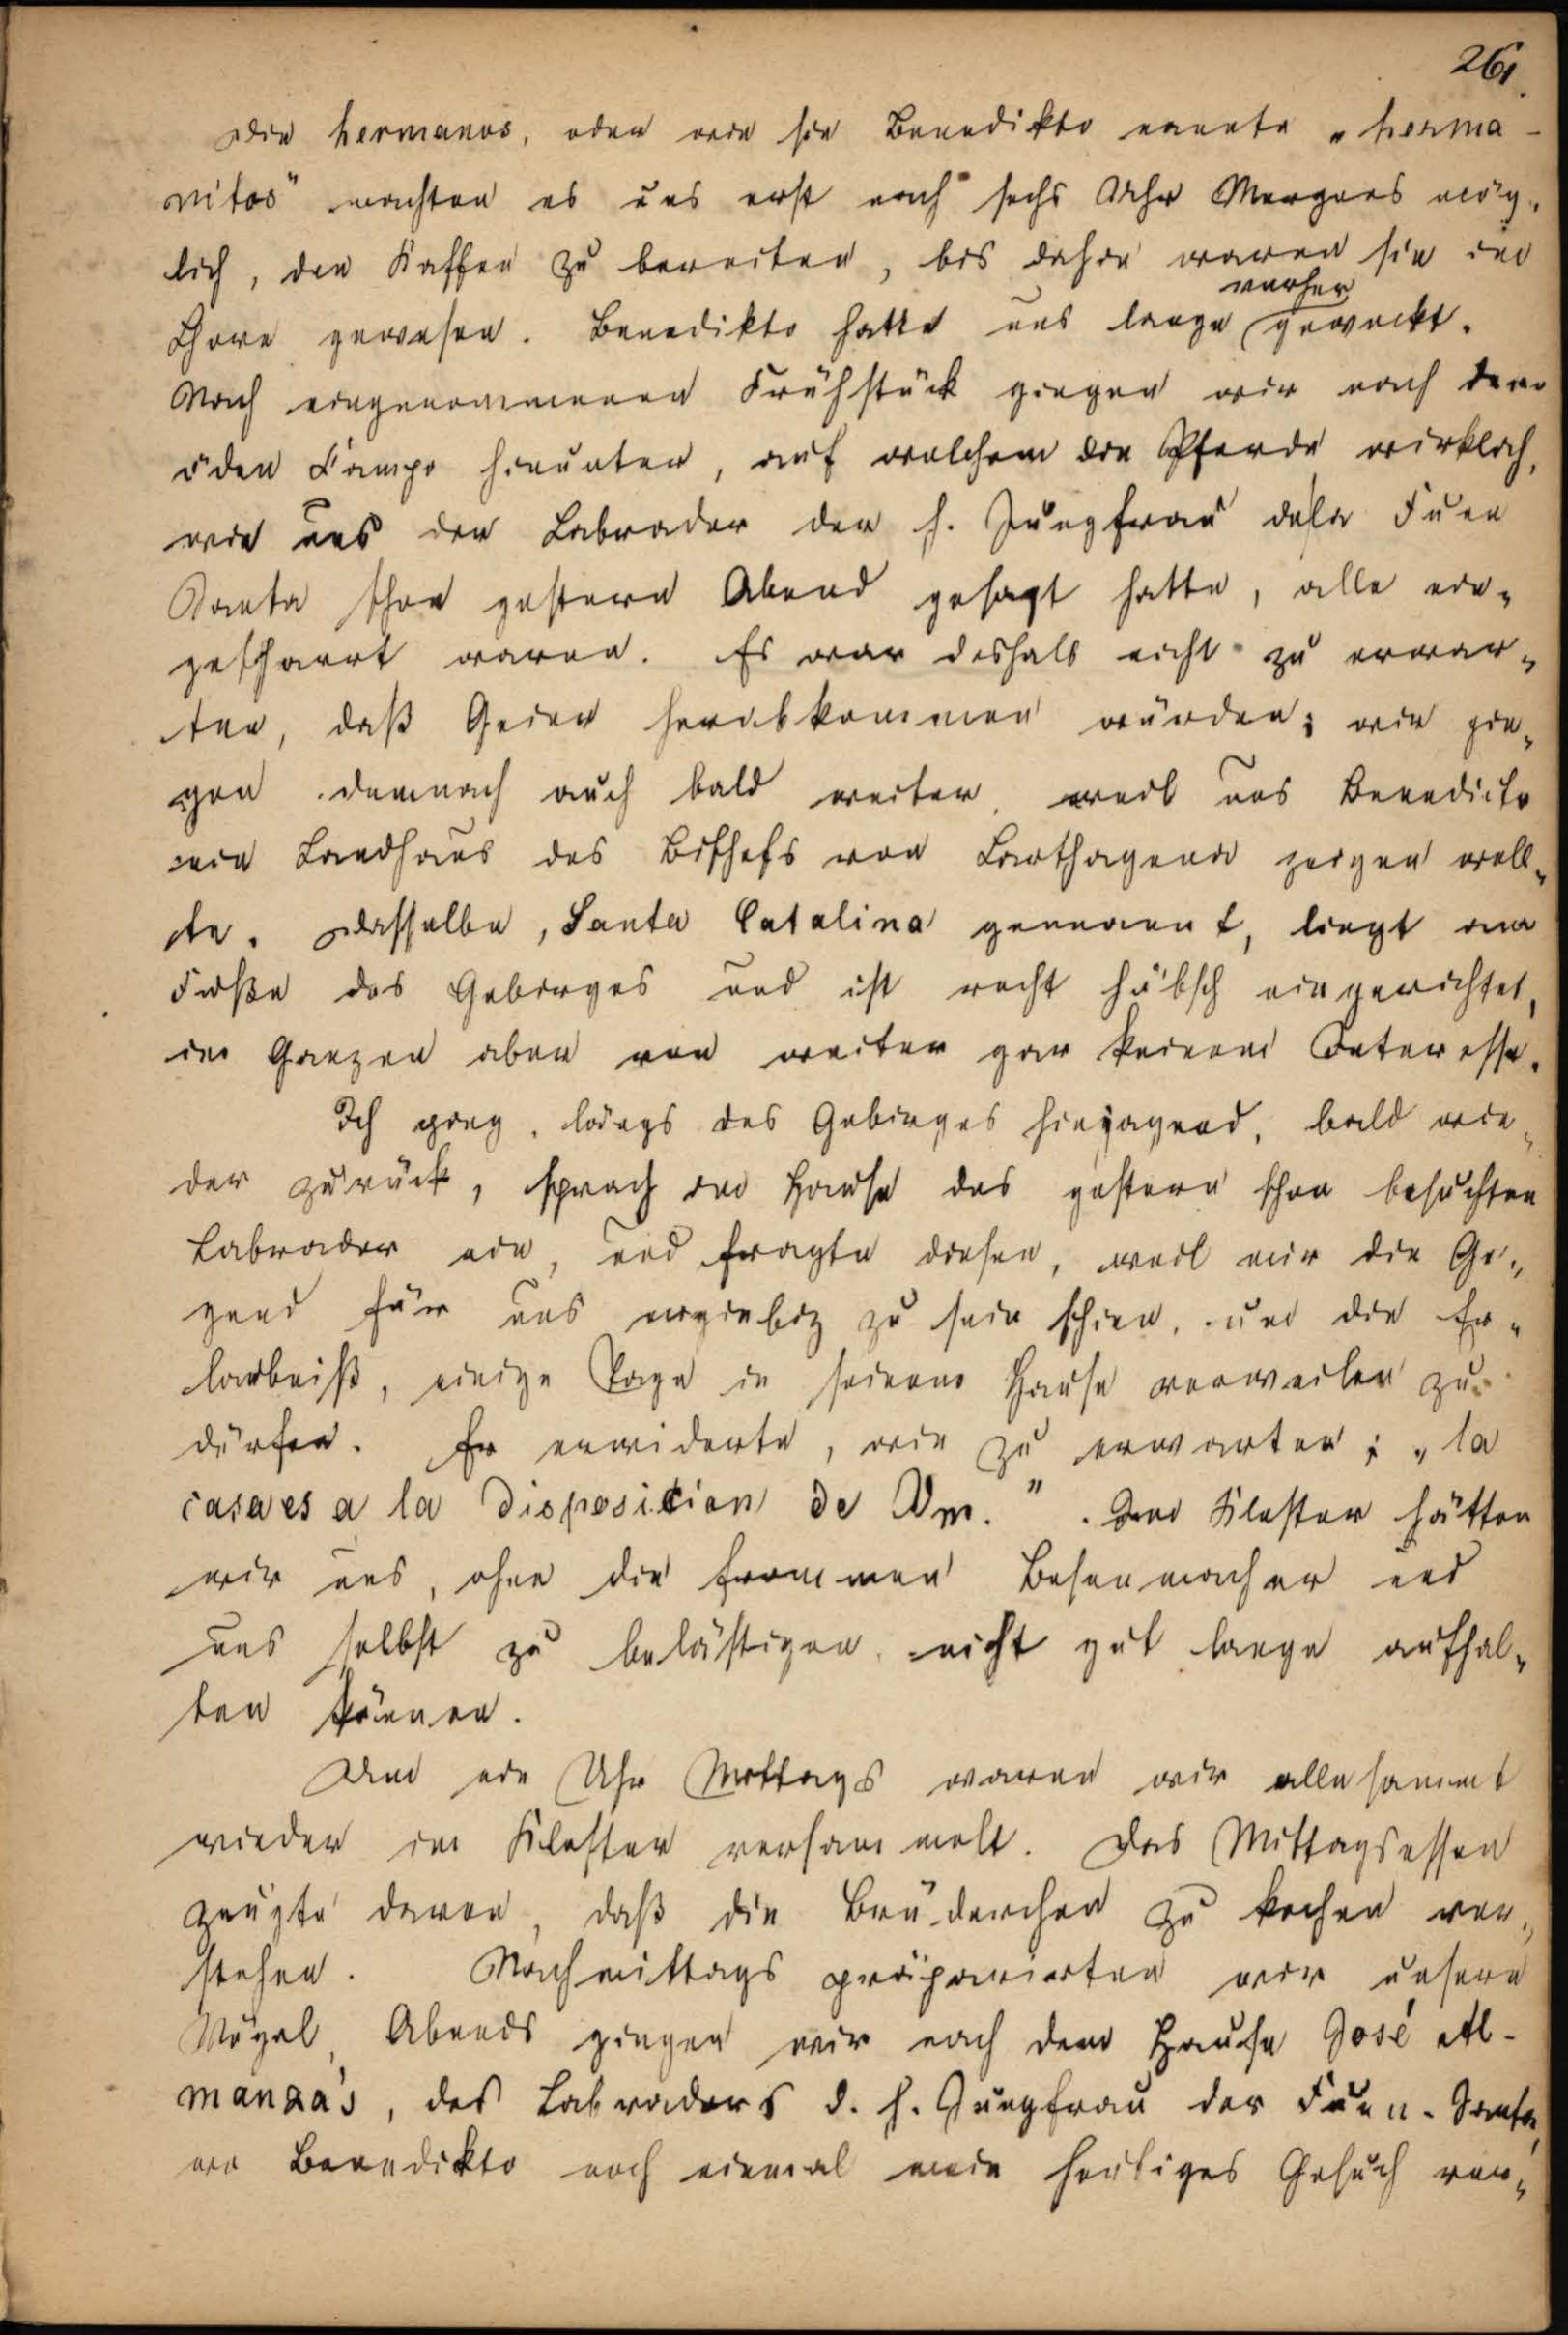 261.
Die hermanos, oder wie sie Benedikto nannte „herma-
nitos" machten es uns erst nach sechs Uhr Morgens mög-
lich, den Kaffee zu bereiten, bis dahin waren sie im
vorher
Chore gewesen. Benedikto hatte uns lange geweckt.
Nach eingenommenen Frühstück gingen wir nach dem
öden Campo hinunter, auf welchem die Pferde wirklich,
wie uns der Labrador der h. Jungfrau dela Fuen
Santa schon gestern Abend gesagt hatte, alle ein-
gescharrt waren. Es war deshalb nicht zu erwar-
ten, daß Geier herabkommen würden; wir gin-
gen demnach auch bald weiter, weil uns Benedicto
ein Landhaus des Bischofs von Carthagena zeigen woll-
te. Dasselbe, Santa Catalina genannt, liegt am
Fuße des Gebirges und ist recht hübsch eingerichtet,
im Ganzen aber von weiter gar keinem Interesse.
Ich ging, längs des Gebirges hinjagend, bald wie-
der zurück, sprach im Hause des gestern schon besuchten
Labrador ein, und fragte diesen, weil mir die Ge-
gend für uns ergiebig zu sein schien, um die Er-
laubniß, einige Tage in seinem Hause verweilen zu
dürfen. Er erwiderte, wie zu erwarten; „la
casa es a la disposicion de Vm." . Im Kloster hätten
wir uns, ohne die frommen Besenmacher und
uns selbst zu belästigen, nicht gut lange aufhal-
ten können.
Um ein Uhr Mittags waren wir allesammt
wieder im Kloster versammelt. Das Mittagsessen
zeugte davon, daß die Brüderchen zu kochen ver-
stehen. Nachmittags präparirten wir unsere
Vögel, Abends gingen wir nach dem Hause José Al-
manza's, des Labradors d. h. Jungfrau der Fuen-Santa,
wo Benedikto noch einmal mein heutiges Gesuch vor-